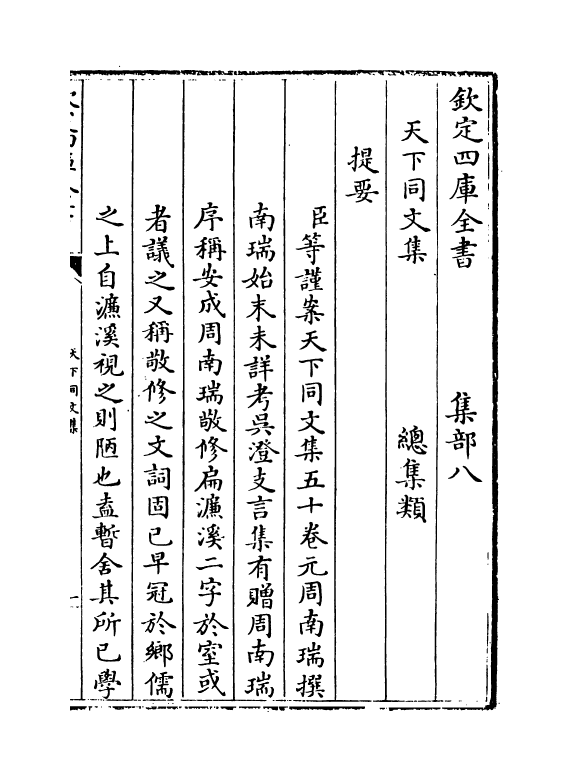 欽定四庫全書　集部八
天下同文集　總集類
提要
臣等謹案天下同文集五十卷元周南瑞撰
南瑞始末未詳考吳澄支言集有贈周南瑞
序稱安成周南瑞敬修扁濂溪二字於室或
者議之又稱敬修之文詞固已早冠於鄉儒
之上自濂溪視之則陋也盍暫舍其所已學
天下同文集
一